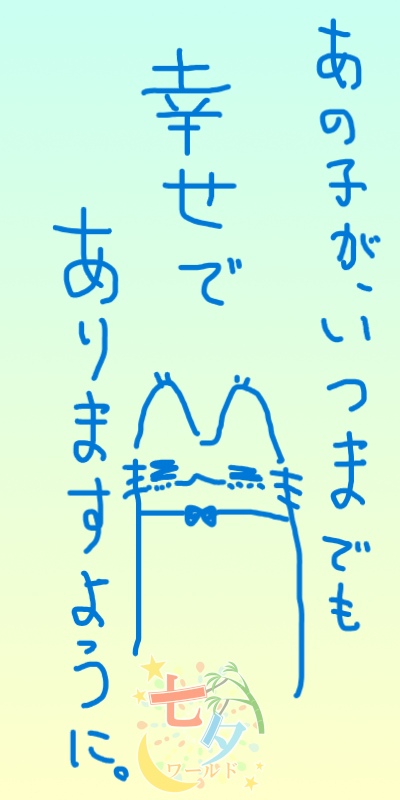 あの子が、いつまでも
幸せで
ありますように。
七夕
ワールド